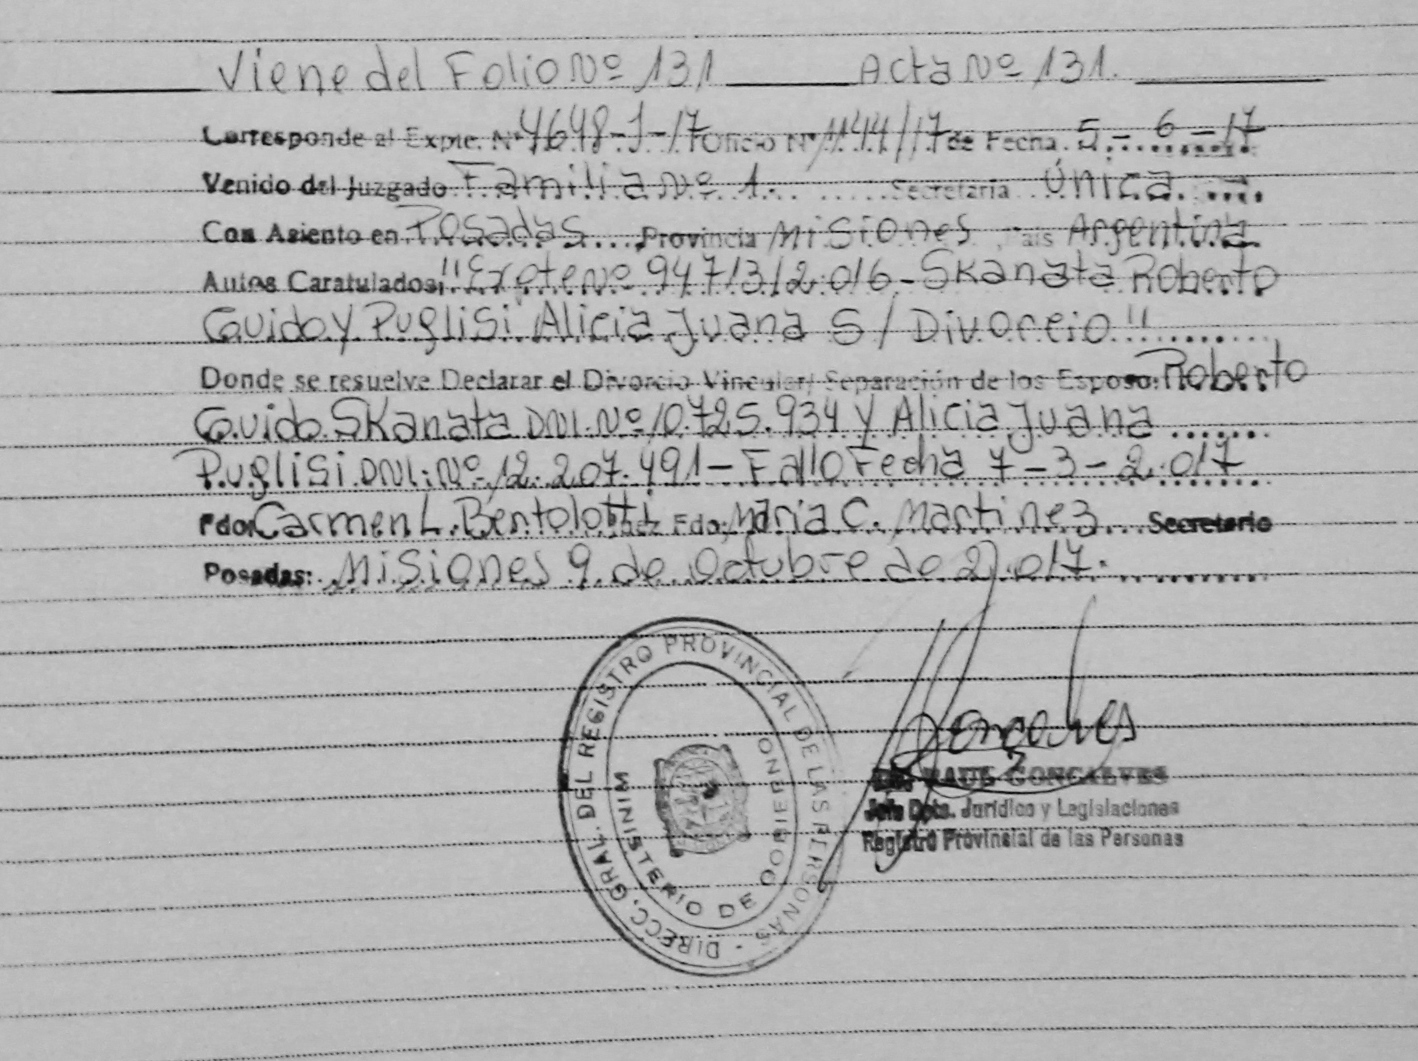 Viene del Folio Nº 131 Acta Nº 131.
Corresponde al Expte. Nº 4648-J-17 Oficio Nº 1144/17 de Fecha 5-6-17
Venido del Juzgado Familia Nº 1. Secretaria Única.
Con Asiento en Posadas Provincia Misiones País Argentina
Autos Caratulados "Expte Nº 9471312.016-Skanata Roberto
Guido Y Puglisi Alicia Juana S/Divorcio"
Donde se resuelve Declarar el Divorcio Vincular/ Separación de los Esposo: Roberto
Guido Skanata DNI. Nº 10.725.934 Y Alicia Juana
Puglisi DNI. Nº 12.207.491-Fallo Fecha 7-3-2.017
Fdo: Carmen L. Bentolotti Juez Fdo: Maria C. Martinez Secretario
Posadas: Misiones 9 de Octubre de 2.017.
DIRECC. GRAL. DEL REGISTRO PROVINCIAL DE LAS PERSONAS -
MINISTERIO DE GOBIERNO
Goncalves
RAUL GONCALVES
Jefe Dpto. Jurídico y Legislaciones
Registro Provincial de las Personas